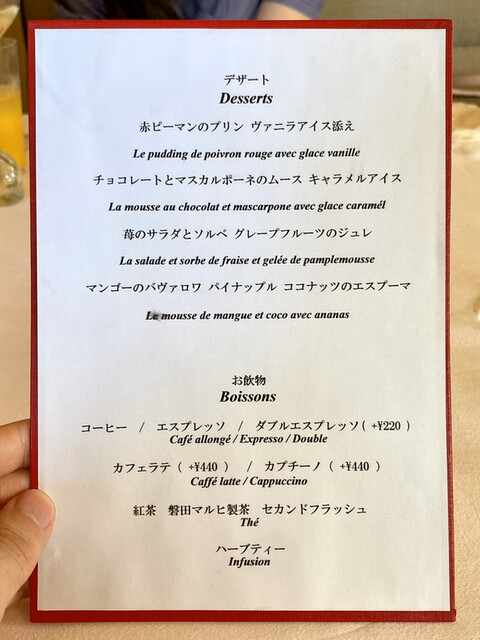 デザート
Desserts
赤ピーマンのプリン ヴァニラアイス添え
Le pudding de poivron rouge avec glace vanille
チョコレートとマスカルポーネのムース キャラメルアイス
La mousse au chocolat et mascarpone avec glace caramél
苺のサラダとソルベ グレープフルーツのジュレ
La salade et sorbe de fraise et gelée de pamplemousse
マンゴーのバヴァロワ パイナップル ココナッツのエスプーマ
La mousse de mangue et coco avec ananas
お飲物
Boissons
コーヒー / エスプレッソ / ダブルエスプレッソ( +¥220 )
Café allongé / Expresso / Double
カフェラテ ( +¥440 ) / カプチーノ ( +¥440 )
Caffé latte / Cappuccino
紅茶 磐田マルヒ製茶 セカンドフラッシュ
Thé
ハーブティー
Infusion